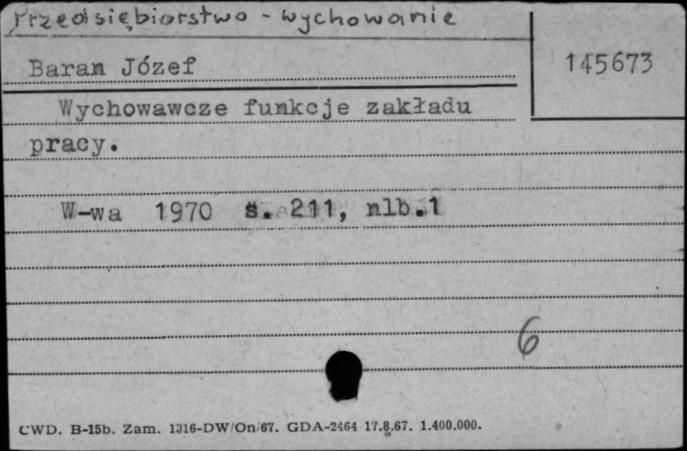 Przedsiębiorstwo - wychowanie
145673
Baran Józef
Wychowawcze funkcje zakładu
pracy.
W-wa 1970 s. 211, nlb.1
6
CWD. B-15b. Zam. 1316-DW/On/67. GDA-2464 17.8.67. 1.400.000.